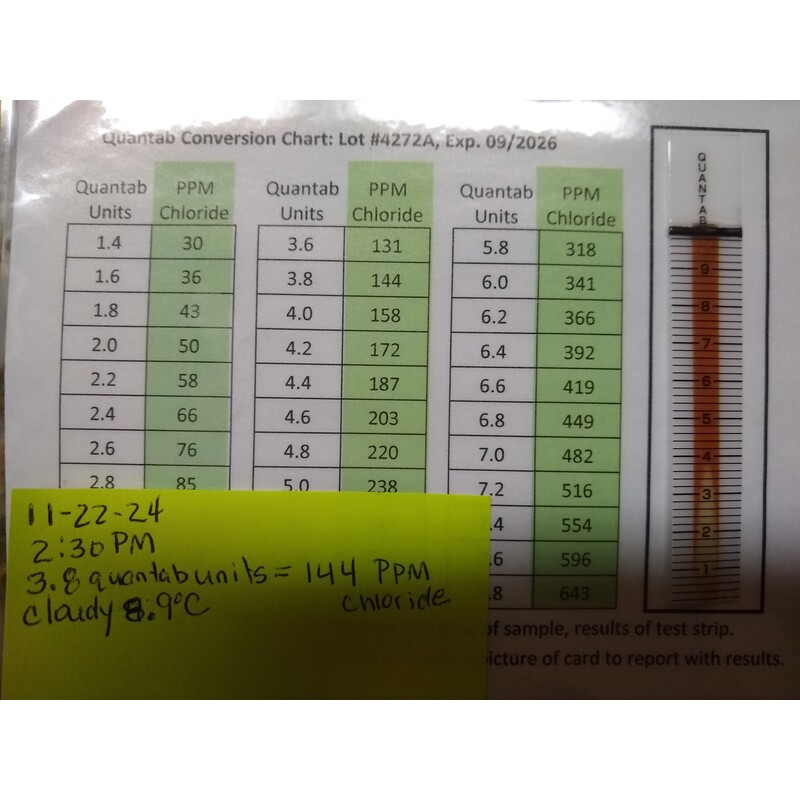 Quantab Conversion Chart: Lot #4272A, Exp. 09/2026
Quantab Units PPM Chloride
1.4 30
1.6 36
1.8 43
2.0 50
2.2 58
2.4 66
2.6 76
2.8 85
Quantab Units PPM Chloride
3.6 131
3.8 144
4.0 158
4.2 172
4.4 187
4.6 203
4.8 220
5.0 238
Quantab Units PPM Chloride
5.8 318
6.0 341
6.2 366
6.4 392
6.6 419
6.8 449
7.0 482
7.2 516
.4 554
.6 596
.8 643
QUANTAB
9
8
7
6
5
4
3
2
1
11-22-24
2:30 PM
3.8 quantab units = 144 PPM
cloudy 8.9°C chloride
of sample, results of test strip.
picture of card to report with results.